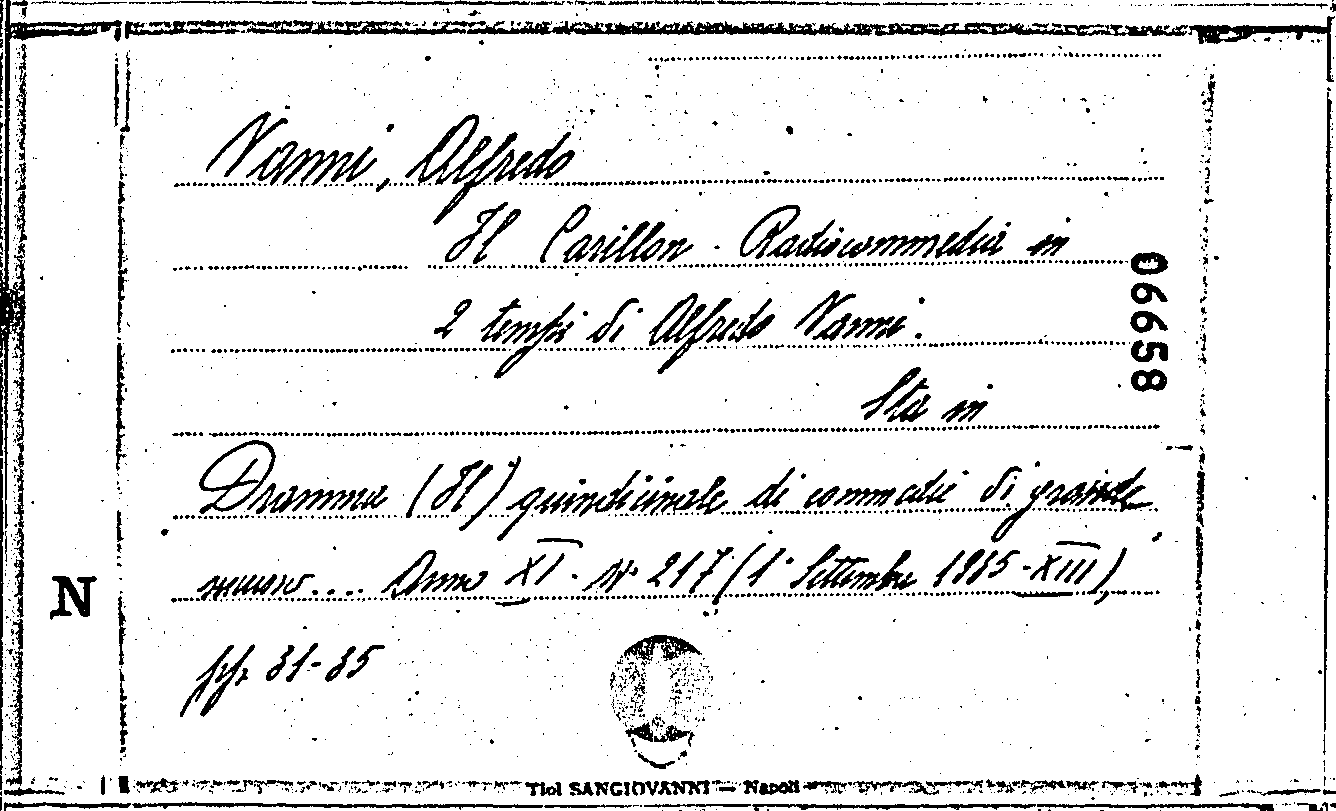 Vanni, Alfredo
Il Carillon - Radiocommedia in
2 tempi di Alfredo Vanni.
06658
Sta in
Dramma (Il) quindicinale di commedie di grande
... Anno XI - N. 217 (1° Settembre 1935-XIII),
N
pp. 31-35
Tipi SANGIOVANNI — Napoli